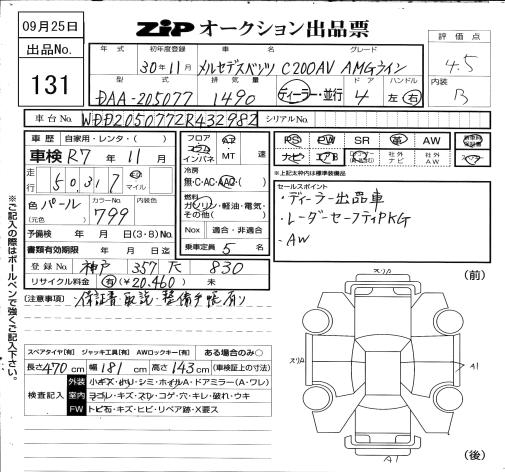 09月25日
出品No.
131
ZiP オークション出品票
評価点
4.5
内装
B
年式 初年度登録 車名 グレード
30年11月 メルセデスベンツ C200AV AMGライン
型式 排気量 ドア ハンドル
DAA-205077 1490 ディーラー・並行 4 左 右
車台No. WDD2050772R432982 シリアルNo.
車歴 自家用・レンタ・( )
車検 R7年 11月
走行 50,317 km マイル
色 パール (元色) カラーNo. 799 内装色
予備検 年 月 日(3・8)No.
書類有効期限 年 月 日迄
登録No. 神戸 357 830
リサイクル料金 有(¥20,460) 未
フロア コラム インパネ AT MT 速
冷房 無・C・AC・AAC・( )
燃料 ガソリン・軽油・電気・その他( )
Nox 適合・非適合
乗車定員 5名
PS PW SR 革 AW
ナビ エアB 社外ナビ 社外AW
※上記太わ枠は標準装備品
セールスポイント
・ディーラー出品車
・レーダーセーフティPKG
・AW
(注意事項) ・保証書・取説・整備手帳有り
※ご記入の際はボールペンで強くご記入下さい。
スペアタイヤ[有] ジャッキ工具[有] AWロックキー[有] ある場合のみ〇
長さ 470cm 幅 181cm 高さ 143cm (車検証上の寸法)
検査記入
外装 小キズ・ホイルA・ドアミラー(A・ワレ)
室内 ヨゴレ・キズ・スレ・コゲ・穴・キレ・破れ・ウキ
FW トビ石・キズ・ヒビ・リペア跡・X要ス
(前)
スリA
スリA
A1
A1 スリA
(後)